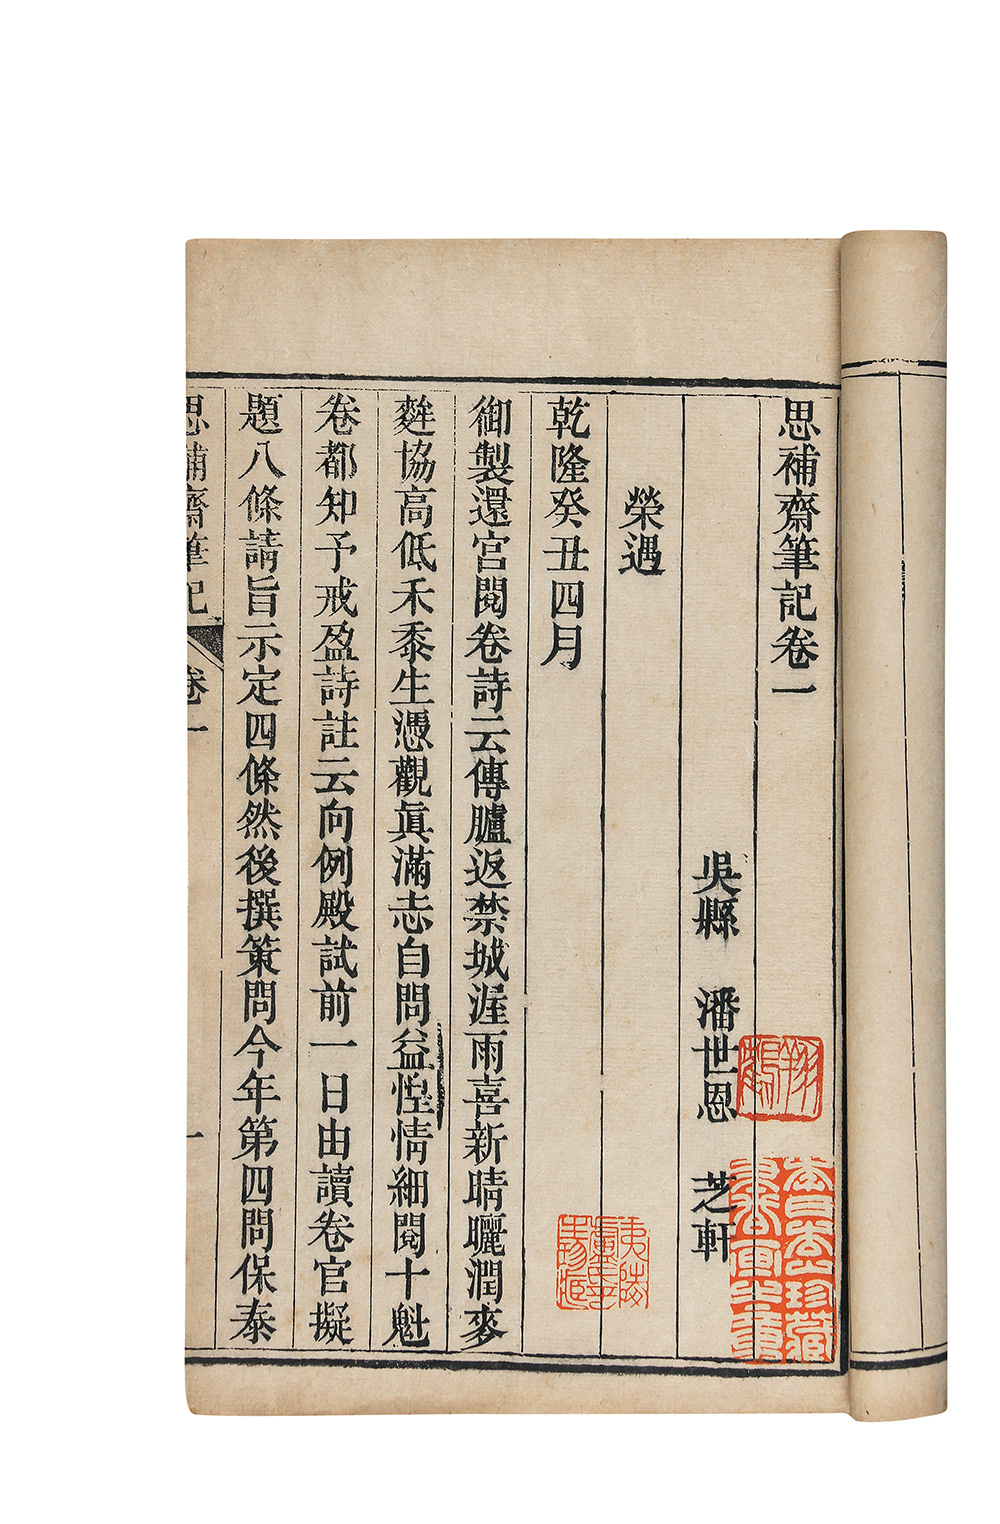 思補齋筆記卷一
吳縣 潘世恩 芝軒
榮遇
乾隆癸丑四月
御製還宮閱卷詩云傳臚返禁城渥雨喜新晴曬潤麥
麰協高低禾黍生憑觀眞滿志自問益惺情細閱十魁
卷都知予戒盈詩註云向例殿試前一日由讀卷官擬
題八條請旨示定四條然後撰策問今年第四問保泰
思補齋筆記 卷一 一